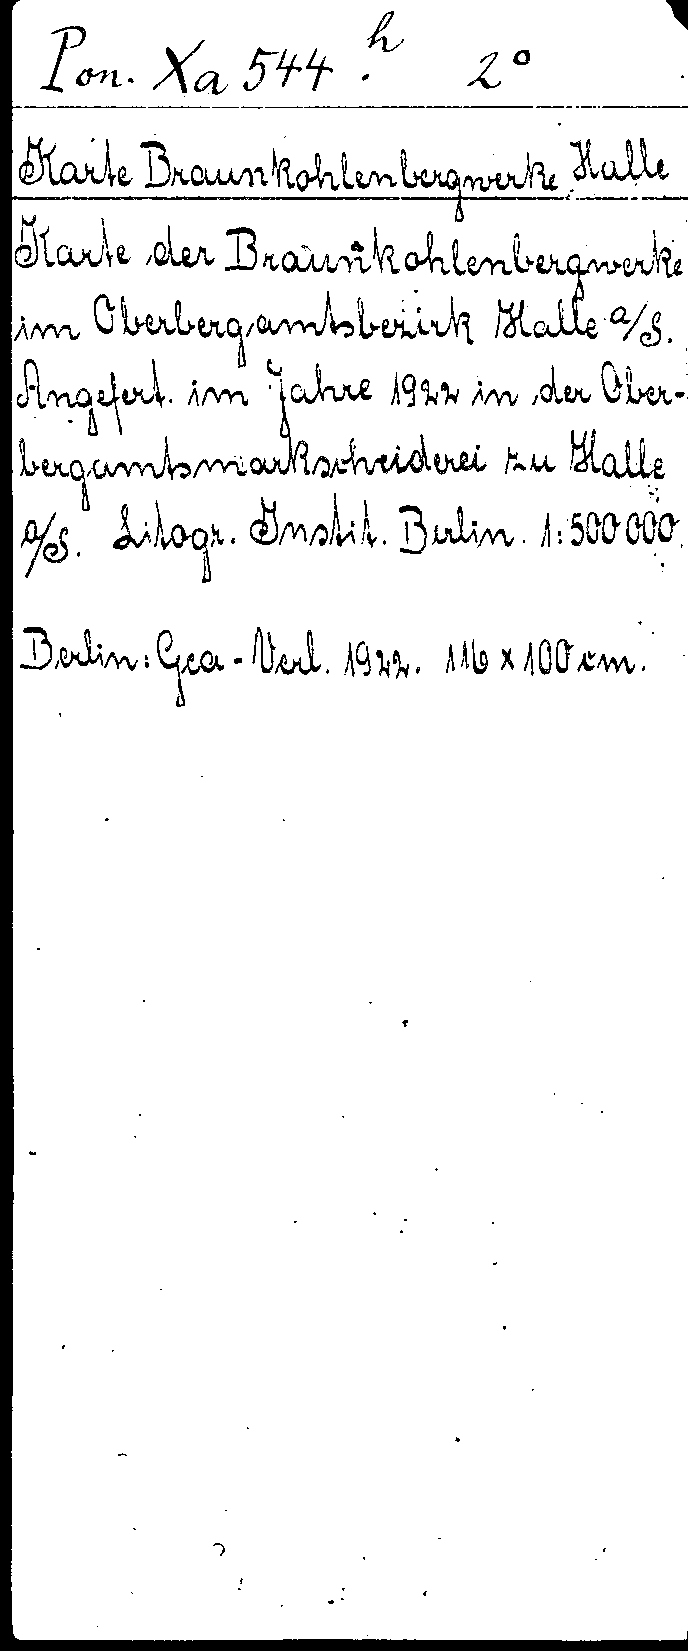 Pon. Xa 544 h. 2°
Karte Braunkohlenbergwerke Halle
Karte der Braunkohlenbergwerke
im Oberbergamtsbezirk Halle a/S.
Angefert. im Jahre 1922 in der Ober-
bergamtsmarkscheiderei zu Halle
a/S. Litogr. Instit. Berlin. 1:500000.
Berlin: Gea-Verl. 1922. 116 x 100 cm.